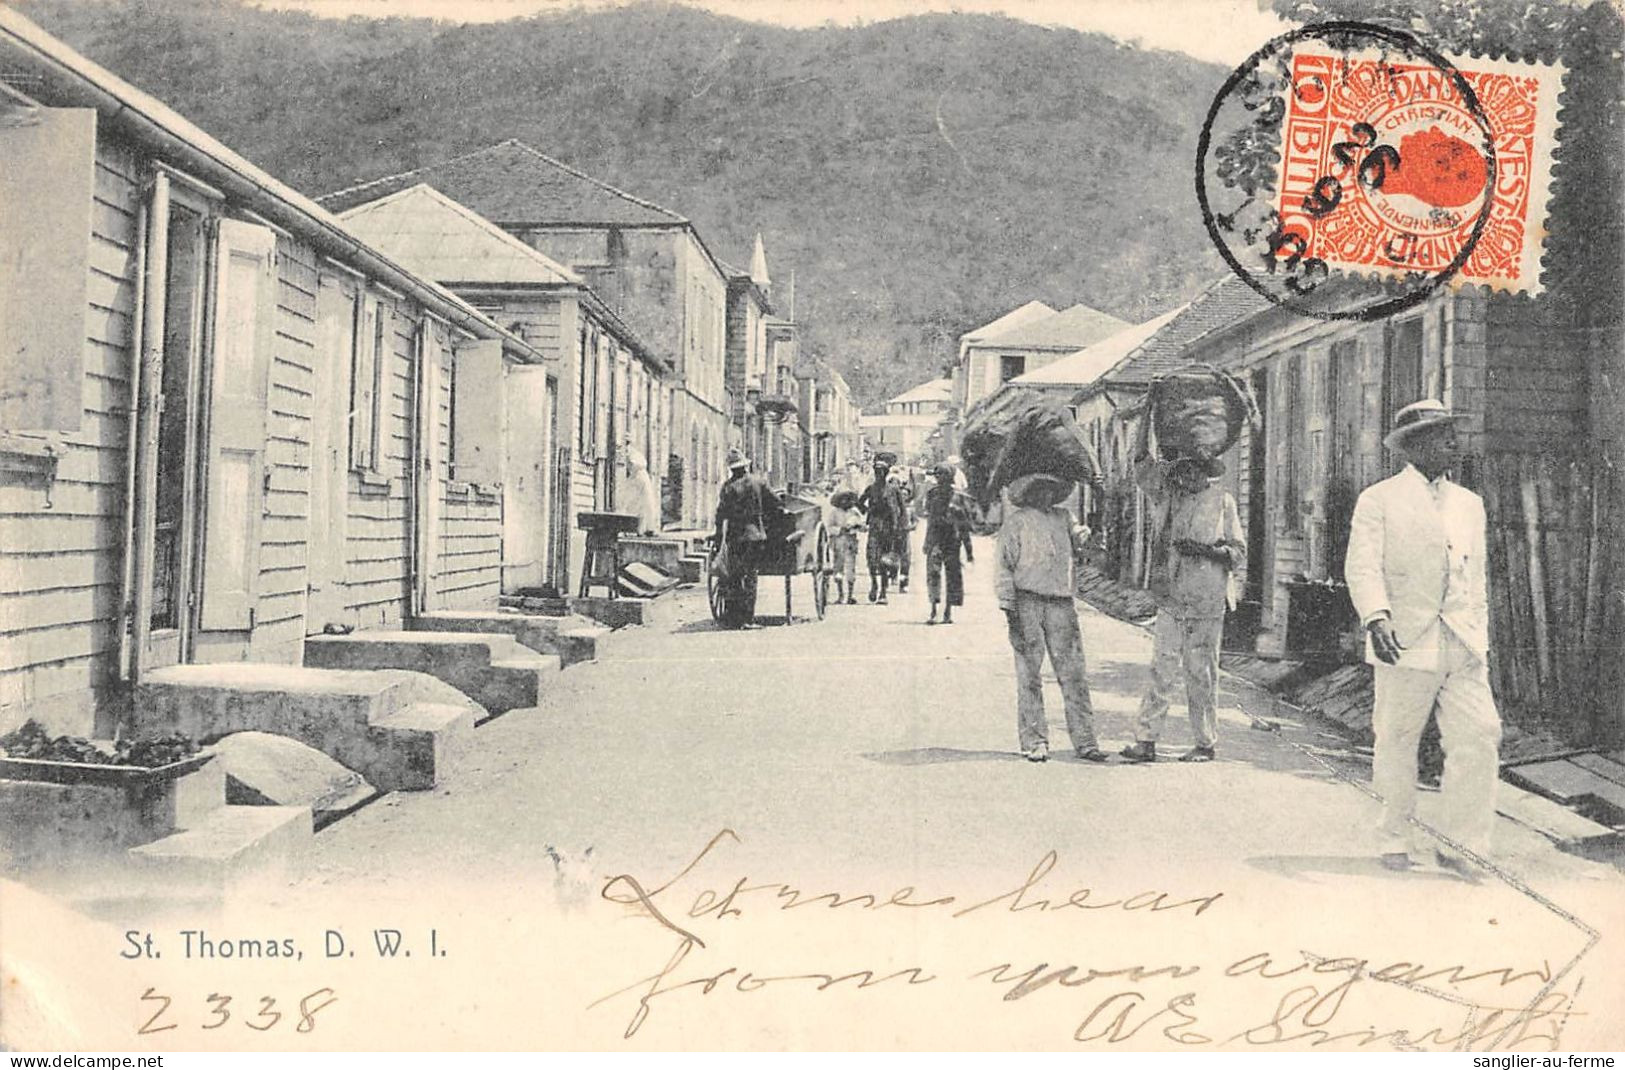 DANSK-VEST-INDIEN
CHRISTIAN
10 BIT
St. Thomas, D. W. I.
2338
Let me hear
from you again
A E Smith
www.delcampe.net
sanglier-au-ferme